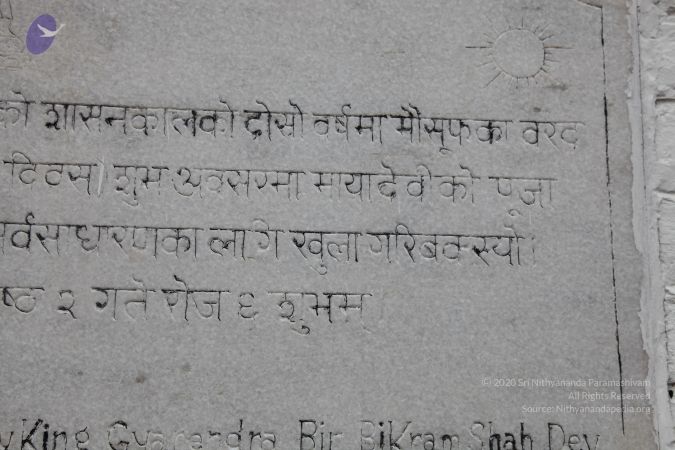 को शासनकालको दोस्रो वर्षमा मौसूफका वरद
दिवस। शुभ अवसरमा मायादेवीको पूजा
र्वसाधारणका लागि खुला गरिबक्स्यो।
ष्ठ २ गते रोज ६ शुभम्
© 2020 Sri Nithyananda Paramashivam
All Rights Reserved
Source: Nithyanandapedia.org
y King Gyanendra Bir Bikram Shah Dev